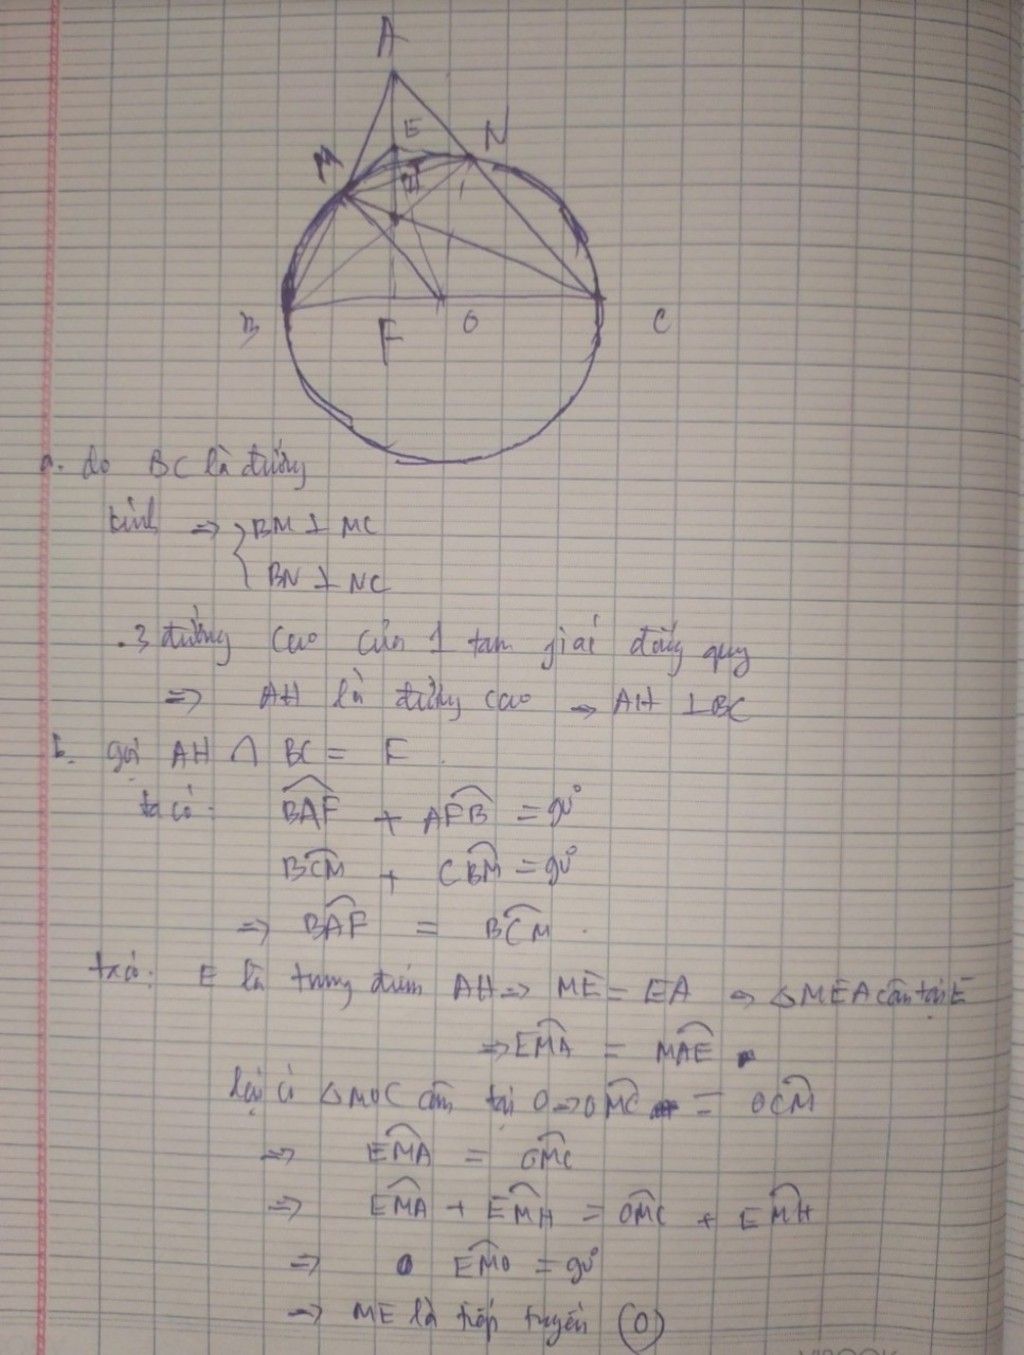 A
E
N
M
H
I
B
F
O
C
a. do BC là đường
kính => { BM ⊥ MC
BN ⊥ NC
. 3 đường cao của 1 tam giác đồng quy
=> AH là đường cao → AH ⊥ BC
b. gọi AH ∩ BC = F.
ta có: BAF + AFB = 90°
BCM + CBM = 90°
=> BAF = BCM.
ta có: E là trung điểm AH => ME = EA → △MEA cân tại E
=> EMA = MAE
lại có △MOC cân tại O → OMC = OCM
=> EMA = OMC
=> EMA + EMH = OMC + EMH
=> EMO = 90°
→ ME là tiếp tuyến (O)